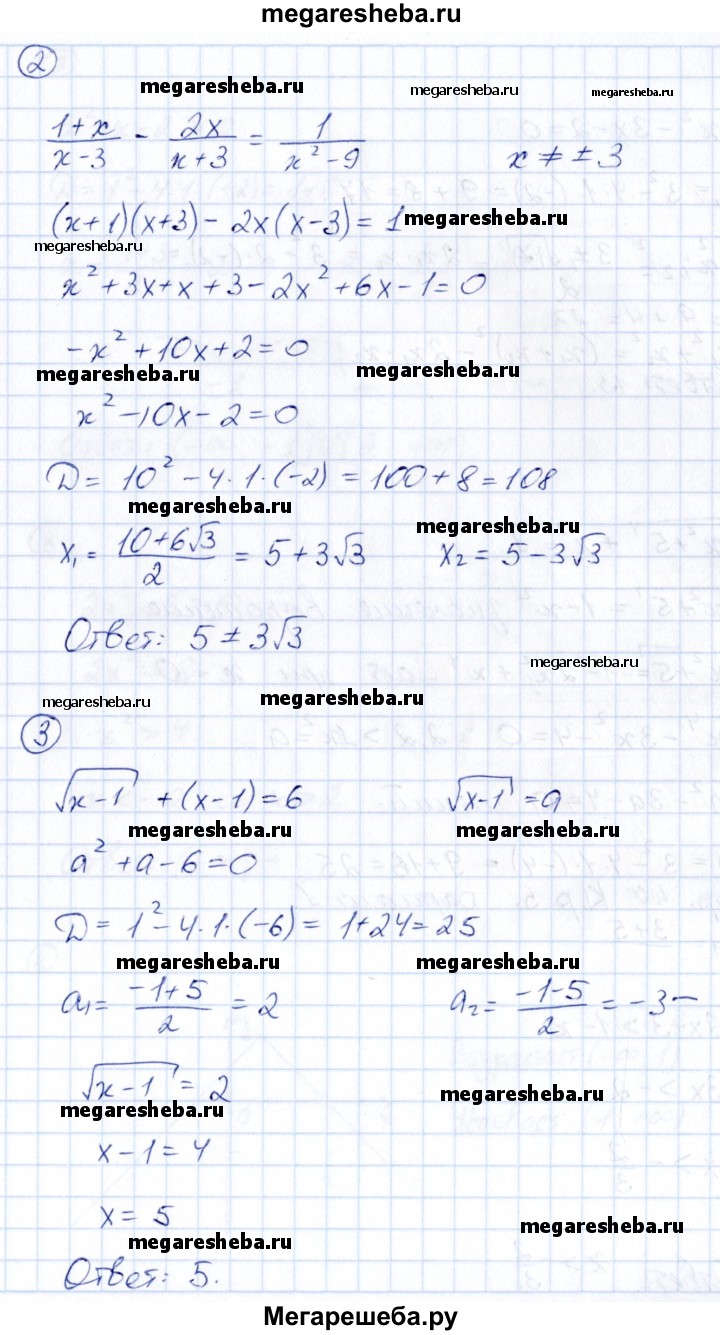 megaresheba.ru
2
megaresheba.ru megaresheba.ru megaresheba.ru
(1+x)/(x-3) - 2x/(x+3) = 1/(x²-9) x ≠ ±3
(x+1)(x+3) - 2x(x-3) = 1 megaresheba.ru
megaresheba.ru
x²+3x+x+3-2x²+6x-1=0
-x²+10x+2=0
megaresheba.ru megaresheba.ru
x²-10x-2=0
D = 10²-4·1·(-2) = 100+8=108
megaresheba.ru megaresheba.ru
x₁ = (10+6√3)/2 = 5+3√3 x₂ = 5-3√3
Ответ: 5 ± 3√3
megaresheba.ru
megaresheba.ru megaresheba.ru
3
√(x-1) + (x-1) = 6 √(x-1) = a
megaresheba.ru megaresheba.ru
a²+a-6=0
D = 1²-4·1·(-6) = 1+24=25
megaresheba.ru megaresheba.ru
a₁ = (-1+5)/2 = 2 a₂ = (-1-5)/2 = -3 -
√(x-1) = 2
megaresheba.ru megaresheba.ru
x-1=4
x = 5
megaresheba.ru megaresheba.ru
Ответ: 5.
Мегарешеба.ру